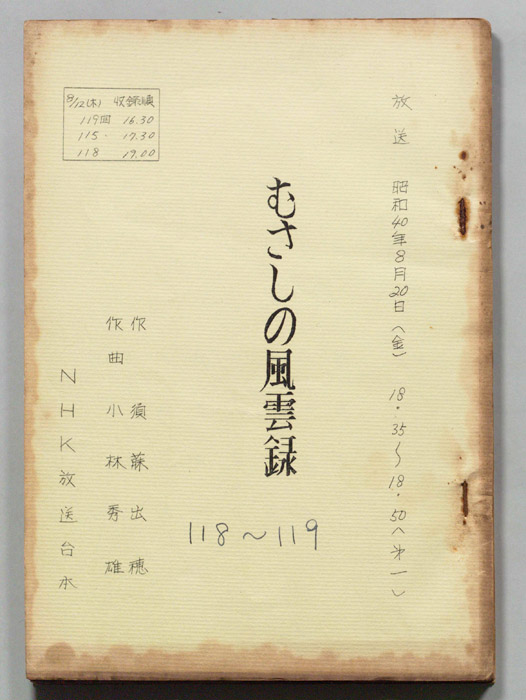 放送 昭和40年8月20日(金) 18.35〜18.50(第一)
むさしの風雲録
118〜119
作 須藤出穂
作曲 小林秀雄
NHK放送台本
8/12(木) 収録順
119回 16.30
115. 17.30
118 19.00